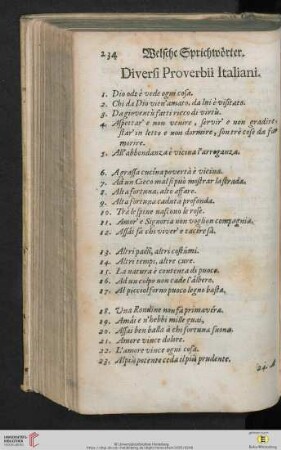 234 Welsche Sprichwörter.
Diversi Proverbii Italiani.
1. Dio ode è vede ogni cosa.
2. Chi da Dio vien' amato, da lui è visitato.
3. Da gioventù fatti ricco di virtù.
4. Aspettar' e non venire, servir' e non gradire:
star' in letto e non dormire, son tre cose da far
morire.
5. All' abbondanza è vicina l'arroganza.
6. A grassa cucina povertà è vicina.
7. Ad un Cieco mal si può mostrar la strada.
8. Alta fortuna, alto affare.
9. Alta fortuna caduta profonda.
10. Trà le spine nascono le rose.
11. Amor' e Signoria non voglion compagnia.
12. Assai sà chi viver' e tacer sà.
13. Altri paësi, altri costumi.
14. Altri tempi, altre cure.
15. La natura è contenta di pouco.
16. Ad un colpo non cade l'albero.
17. Al picciol forno poco legno basta.
18. Una Rondine non fà primavera.
19. Amai e n'hebbi mille guai.
20. Assai ben balla à chi fortuna suona.
21. Amore vince dolore.
22. L'amore vince ogni cosa.
23. Al più potente ceda il più prudente.
24. A